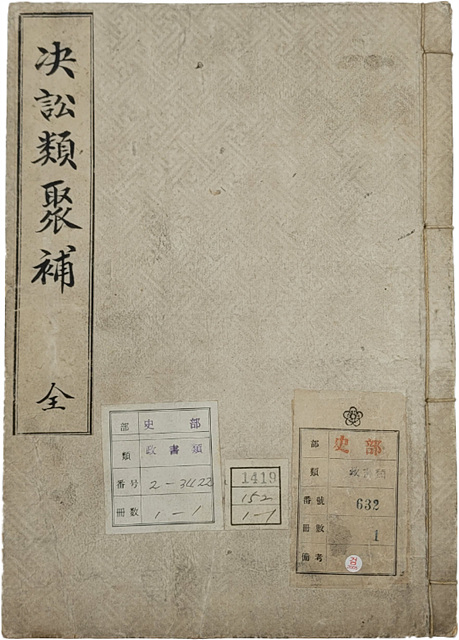 决訟類聚補 全
部 史部
類 政書類
番号 2-3422
冊数 1-1
1419
152
1-1
部 史部
類
番號 632
冊數 1
備考
검